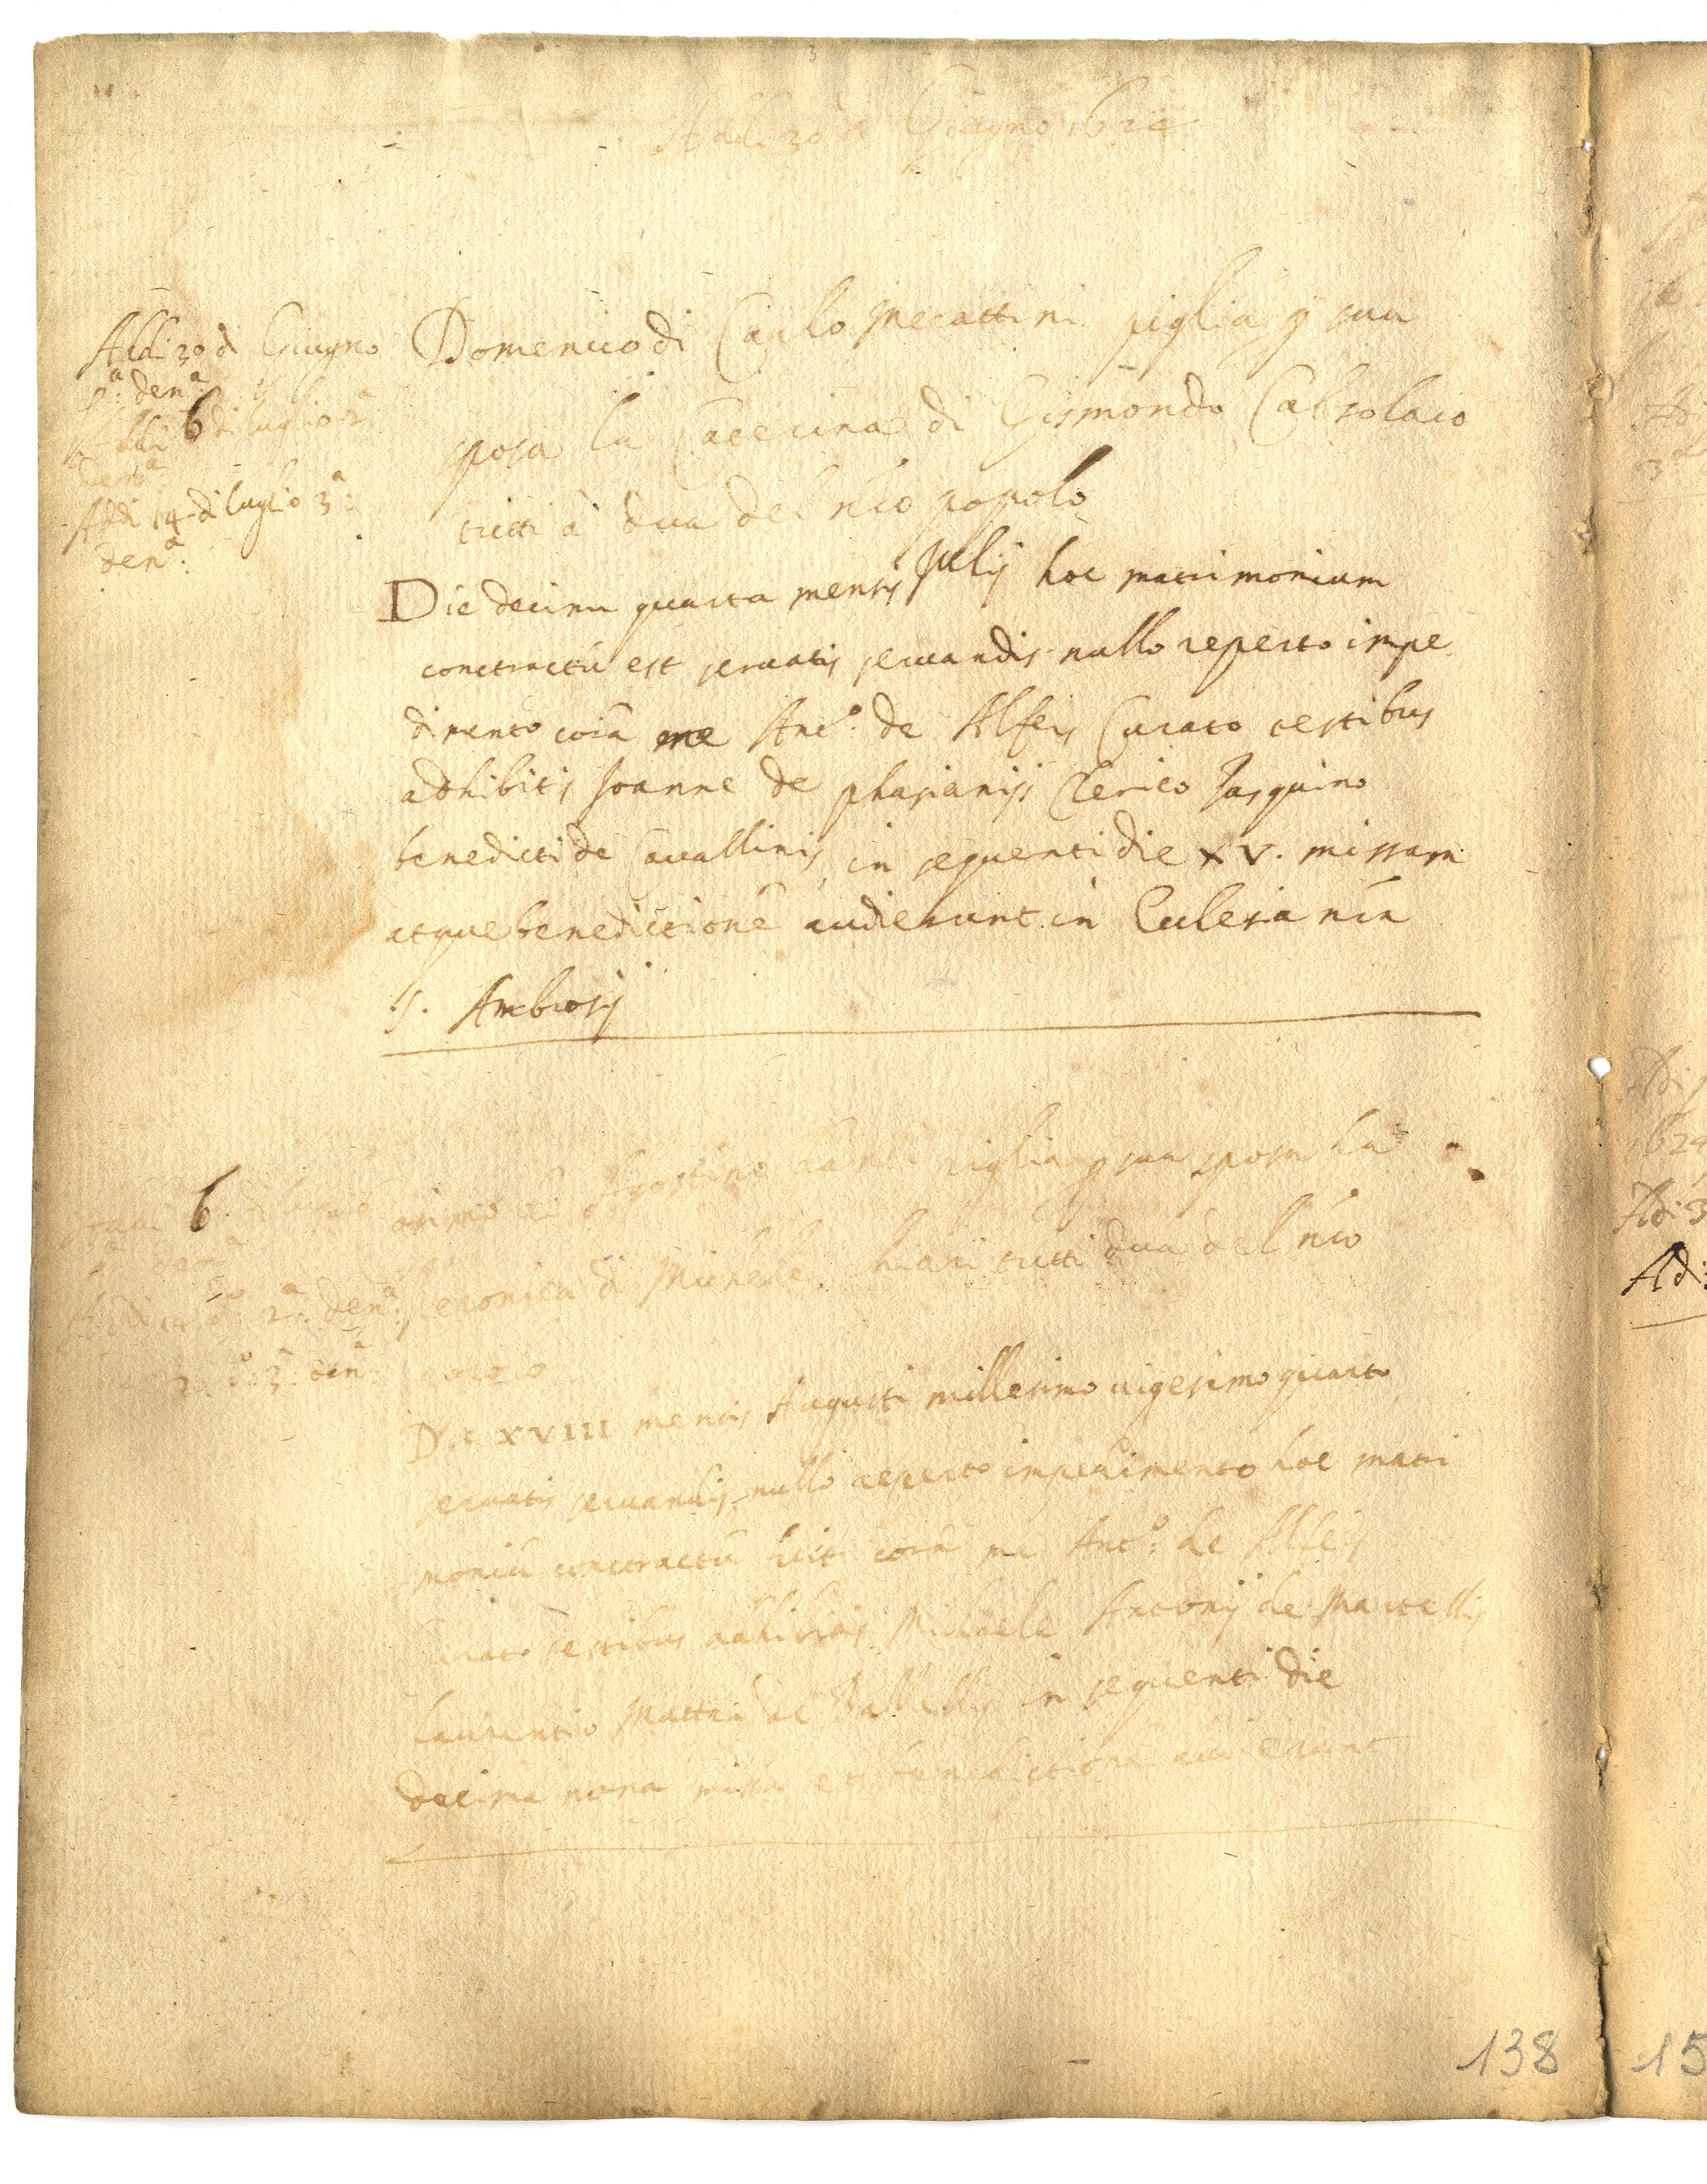 Addi 30 di Giugno 1624
Addi 30 di Giugno
pª: denª:
Addi 6 di luglio 2ª
denª:
Addi 14 di luglio 3ª:
denª:
Domenico di Carlo Mecattini piglia p sua
sposa la Caterina di Gismondo Calzolaio
tutti à dua del nr̃o popolo
Die decima quarta mensis Julij hoc matrimonium
contractũ est seruatis seruandis nullo reperto impe
dimento corã me Antº: de Alfeis Curato testibus
adhibitis Joanne de phasianijs Clerico
benedicti de Cavallinis, in sequenti die XV. missam
atque benedictionẽ audierunt in Eclesia nr̃a
S. Ambrosij
6
pª denª
2ª: denª:
3ª: denª:
di Agostino piglia p sua sposa la
di Michele tutti dua del nr̃o
popolo
Die XVIII mensis Augusti millesimo uigesimo quarto
seruatis seruandis, nullo reperto impedimento hoc matri
moniũ contractũ fuit corã me Antº: de Alfeis
Curato testibus adhibitis Michaele Antonij de Martellis
Laurentio Mattei de in sequenti die
decima nona missã et benedictionẽ audierunt
138
15
1624
Adi 3
Adi: